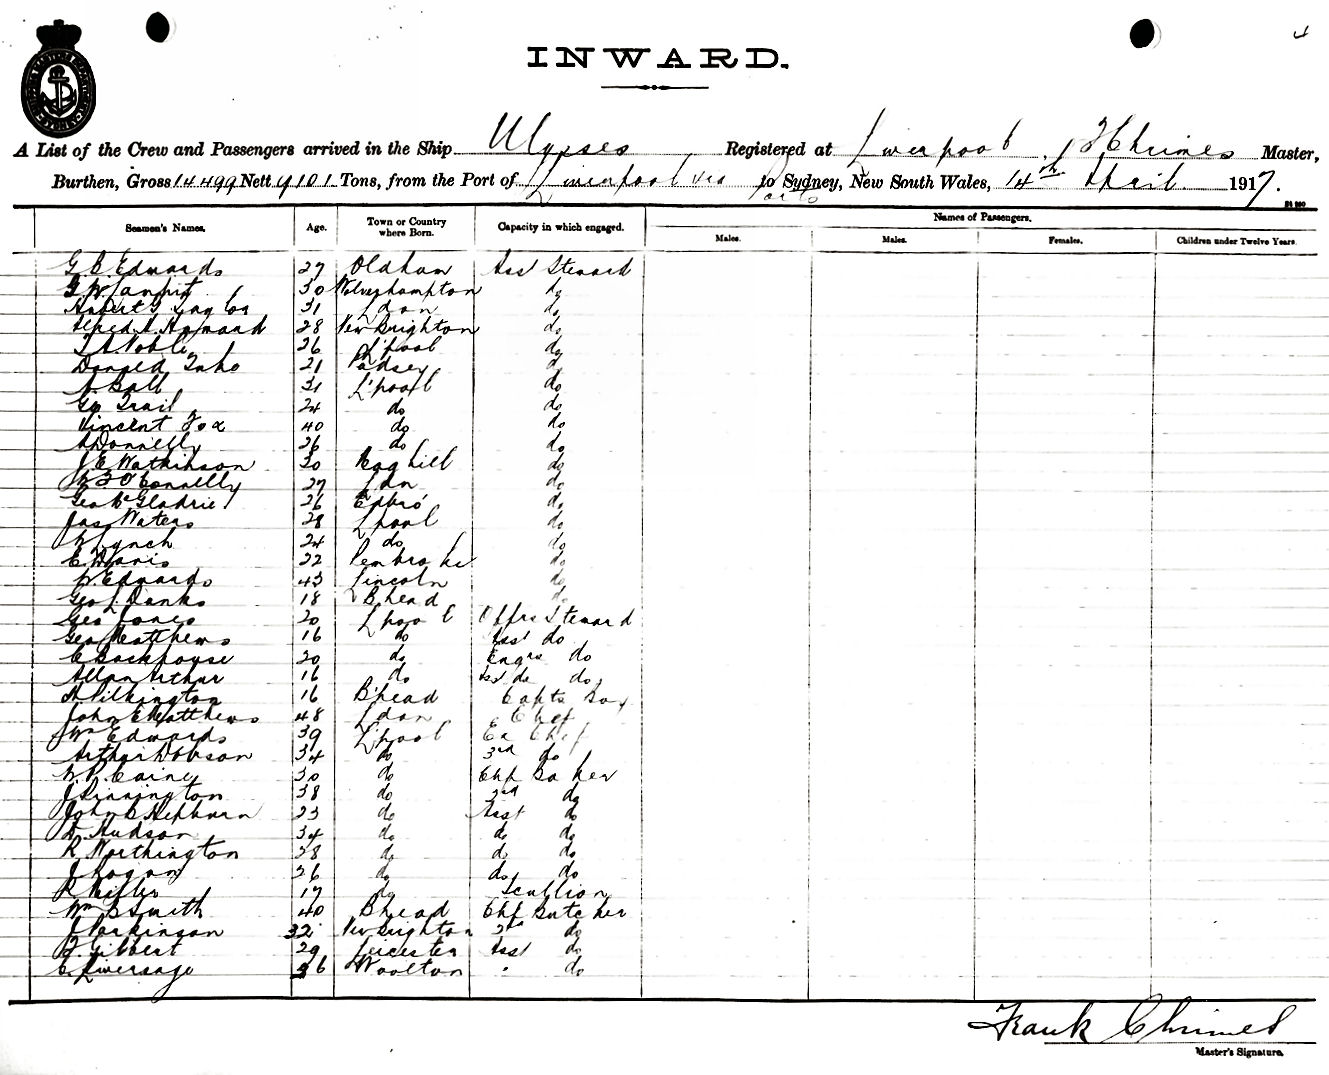 INWARD.
A List of the Crew and Passengers arrived in the Ship Ulysses, Registered at Liverpool, F Chrimes Master,
Burthen, Gross 14499 Nett 9101 Tons, from the Port of Liverpool via Ports to Sydney, New South Wales, 14th April 1917.
Seamen's Names. Age. Town or Country where Born. Capacity in which engaged. Names of Passengers.
Males. Males. Females. Children under Twelve Years.
G. B. Edwards 27 Oldham Asst Steward
G. W. 30 Wolverhampton do
Taylor 31 Ldon do
Alfred A. Haymond 28 New Brighton do
T. A. Noble 26 L'pool do
Donald 21 Pudsey do
A. Ball 31 L'pool do
Geo Trail 24 do do
Vincent Fox 40 do do
A Donnelly 26 do do
J E Watkinson 30 do
O'Connelly 27 Ldn do
Geo Mc 26 do
Jas Waters 28 Lpool do
W Lynch 24 do do
E. Davis 22 Pembroke do
W. Edwards 43 Lincoln do
Geo L. Danks 18 B'head do
Geo Jones 20 Lpool Offrs Steward
Geo Matthews 16 do Asst do
C Backhouse 20 do Engrs do
Allan Arthur 16 do Asst do do
H Pilkington 16 B'head Capts Boy
John E Matthews 48 Ldon Chef
Wm Edwards 39 L'pool Ex Chef
Arthur Dobson 34 do 3rd do
W. R. Caine 30 do Chf Baker
J Pinnington 38 do 2nd do
John C Hepburn 23 do Asst do
D. Hudson 34 do do do
R Worthington 28 do do do
J Logan 26 do do do
R Miller 17 do Scullion
Wm B Smith 40 B'head Chf Butcher
J Parkinson 32 New Brighton 2nd do
F. Gibbert 29 Leicester Asst do
C. Liversage 36 Woolton " do
Frank Chrimes
Master's Signature.